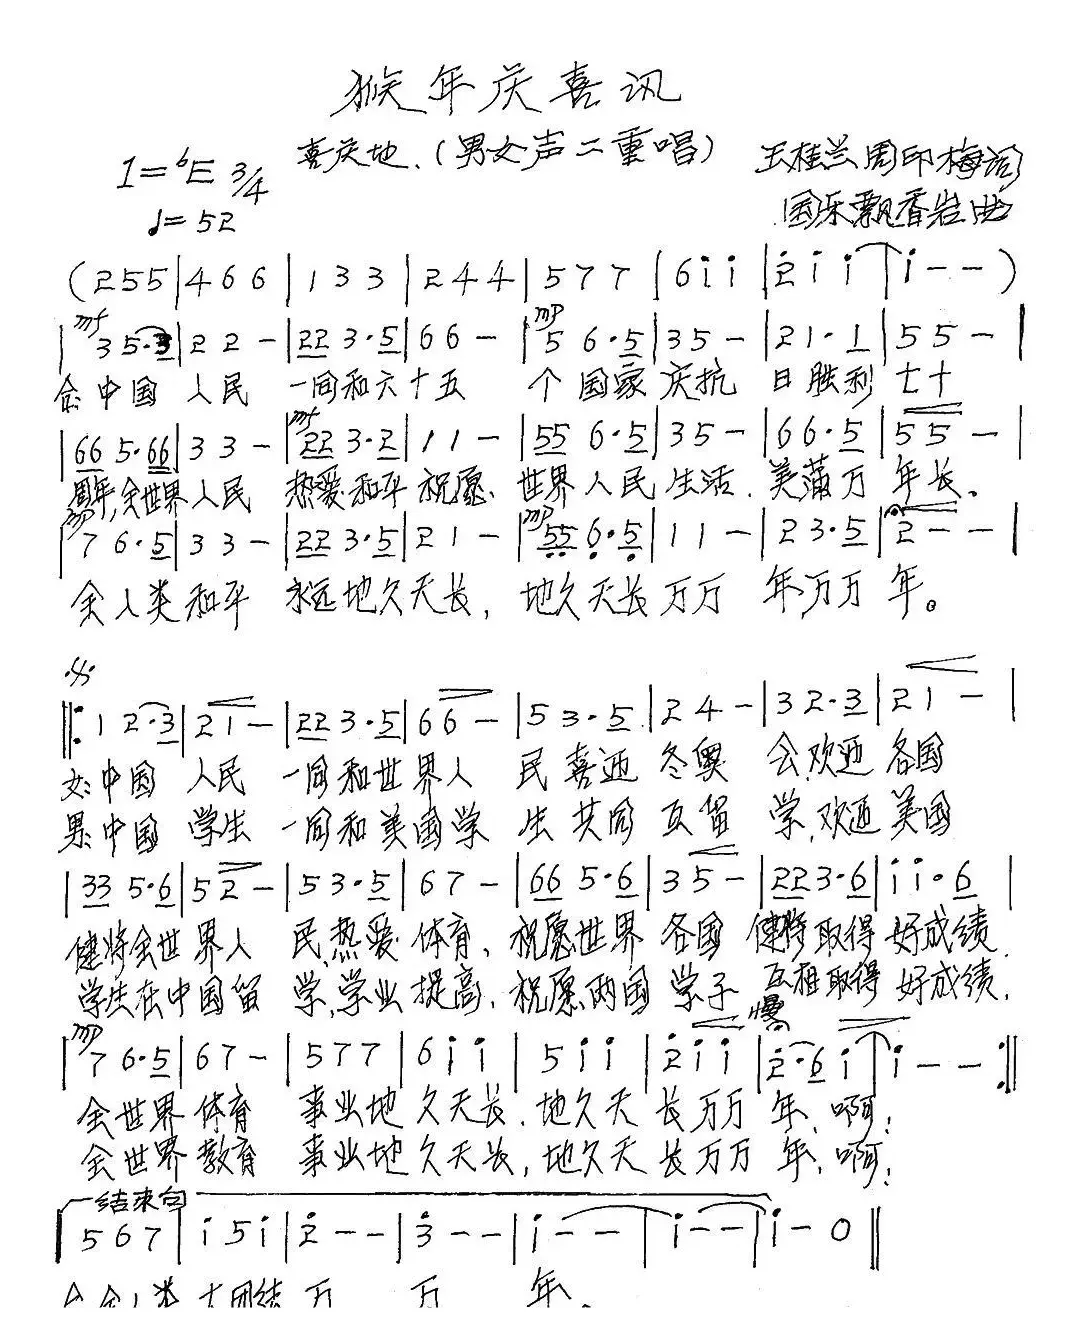 猴年庆喜讯
喜庆地.(男女声二重唱)
1=♭E 3/4
王桂兰周印梅词
♩=52
国乐飘香岩曲
(255|466|133|244|577|6i̇i̇|2̇i̇i̇|i̇--)
mf mp
|35·3|22-|223·5|66-|56·5|35-|21·1|55-|
合:中国 人民 一同和六十五 个国家庆抗 日胜利 七十
mf
|665·66|33-|223·2|11-|556·5|35-|66·5|55-|
周年,全世界人民 热爱和平祝愿. 世界人民生活.美满万 年长。
mp mp
|76·5|33-|223·5|21-|556·5|11-|23·5|2--|
全人类和平 永远地久天长,地久天长万万 年,万万年。
|:12·3|21-|223·5|66-|53·5|24-|32·3|21-|
女:中国 人民 一同和世界人 民喜迎 冬奥 会,欢迎 各国
男:中国 学生 一同和美国学 生共同 互留 学,欢迎美国
|335·6|52-|53·5|67-|665·6|35-|223·6|i̇i̇·6|
健将全世界人 民,热爱 体育,祝愿世界 各国 健将取得 好成绩.
学生在中国留 学,学业提高,祝愿两国 学子 互相取得 好成绩,
mp 慢
|76·5|67-|577|6i̇i̇|5i̇i̇|2̇i̇i̇|2̇·6i̇|i̇--:||
全世界 体育 事业地久天长.地久天 长万万 年,啊;
全世界教育 事业地久天长,地久天 长万万 年,啊;
结束句
567|i̇5i̇|2̇--|3̇--|i̇--|i̇--|i̇-0||
大团结 万 万 年.